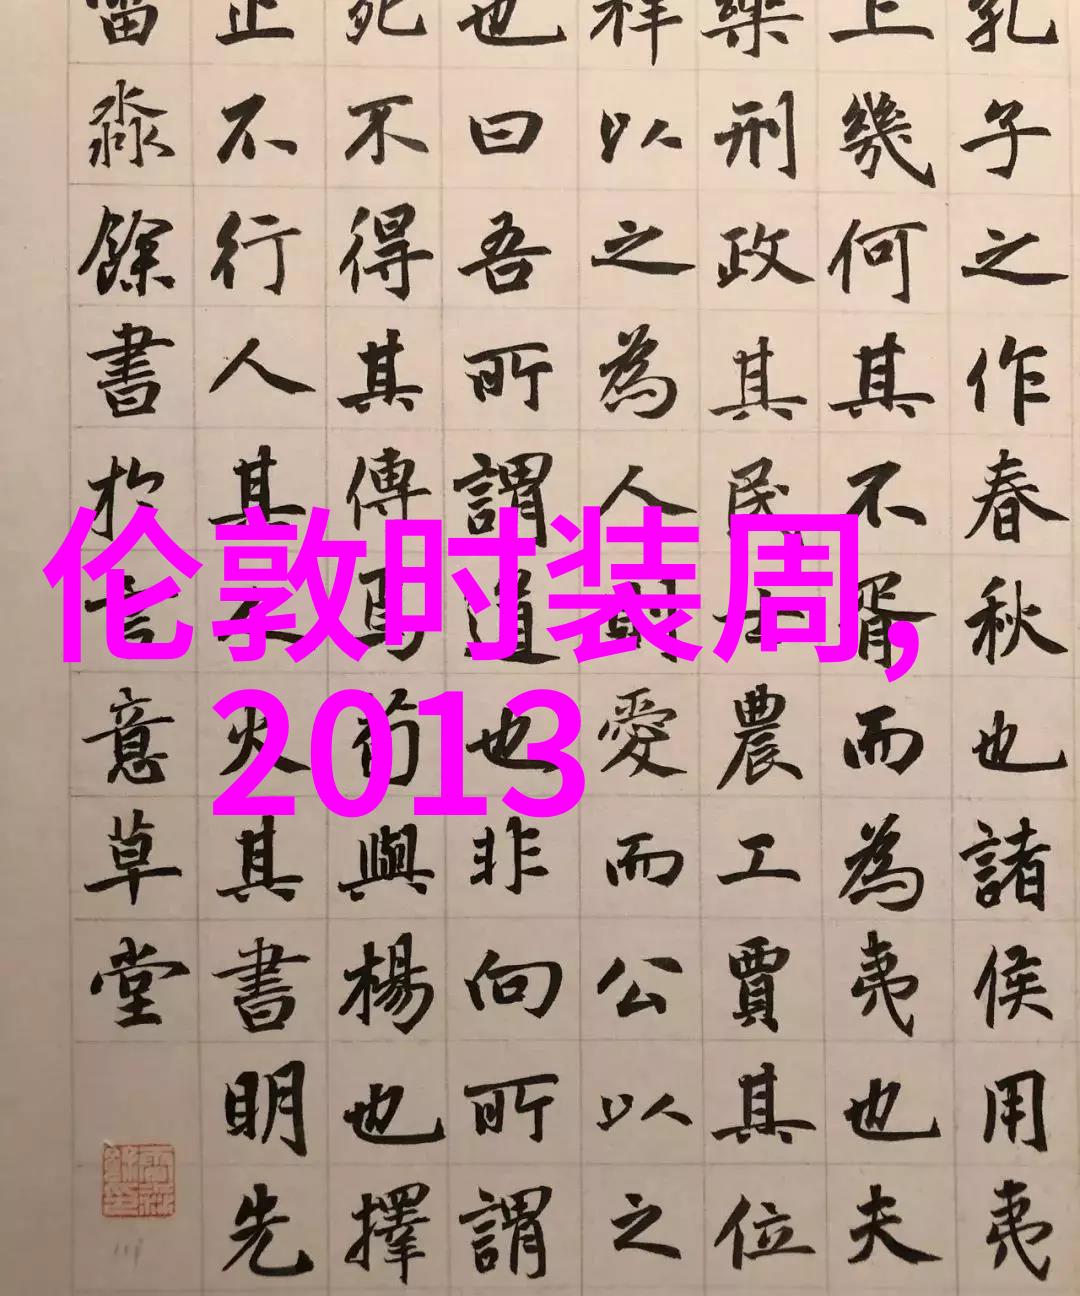 孔子之作春秋也諸侯用夷
上幾何其不胥而為夷也夫
樂刑政其民士農工賈其位
祥以之為人則愛而公以之
也曰吾所謂道也非向所謂
死不得其傳焉荀與楊也擇
止不行人其人火其書明先
淼餘書於意草堂
伦敦时装周,
2013